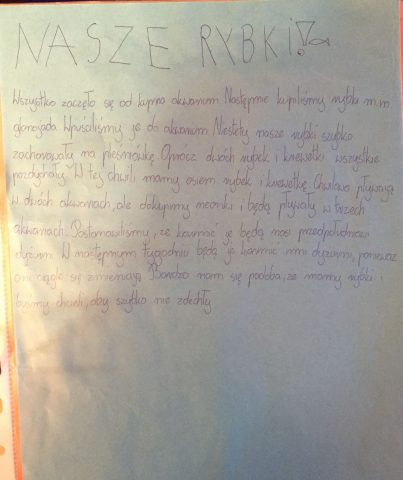 NASZE RYBKI!
Wszystko zaczęło się od kupna akwarium. Następnie kupiliśmy rybki m.in
glonojada. Wpuściliśmy je do akwarium. Niestety nasze rybki szybko
zachorowały na pleśniawkę. Oprócz dwóch rybek i krewetki wszystkie
pozdychały. W tej chwili mamy osiem rybek i krewetkę. Chwilowo pływają
w dwóch akwariach, ale dokupimy i będą pływały w trzech
akwariach. Postanowiliśmy, że karmić je będą nasi przedpołudniowi
dyżurni. W następnym tygodniu będą je karmić inni dyżurni, ponieważ
oni ciągle się zmieniają. Bardzo nam się podoba, że mamy rybki i
byśmy chcieli, aby szybko nie zdechły.